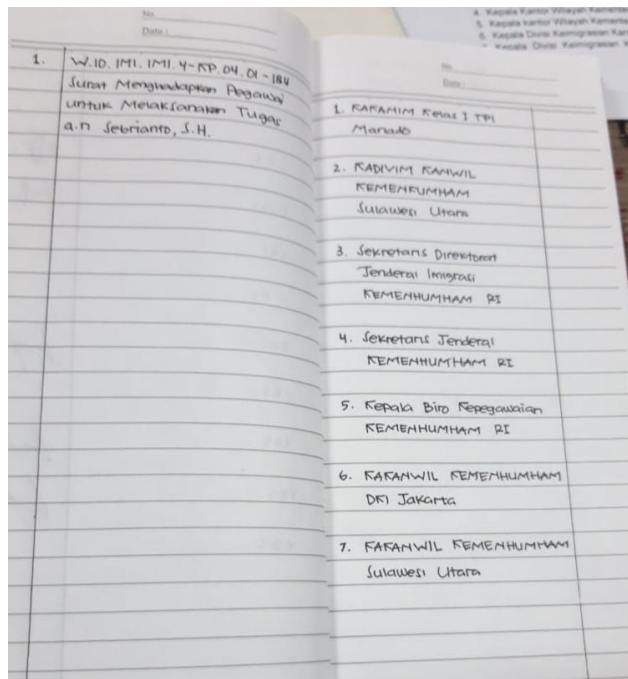 4. Kepala Kantor Wilayah Kementer
5. Kepala Kantor Wilayah Kementer
6. Kepala Divisi Keimigrasian Kan
Kepala Divisi Keimigrasian
No.
Date :
1. W.10.IMI.IMI.4-KP.04.01-184
Surat Menghadapkan Pegawai
untuk Melaksanakan Tugas
a.n Sebrianto, S.H.
No.
Date :
1. KAKAMIM Kelas I TPI
Manado
2. KADIVIM KANWIL
KEMENKUMHAM
Sulawesi Utara
3. Sekretaris Direktorat
Jenderal Imigrasi
KEMENHUMHAM RI
4. Sekretaris Jenderal
KEMENHUMHAM RI
5. Kepala Biro Kepegawaian
KEMENHUMHAM RI
6. KAKANWIL KEMENHUMHAM
DKI Jakarta
7. KAKANWIL KEMENHUMHAM
Sulawesi Utara